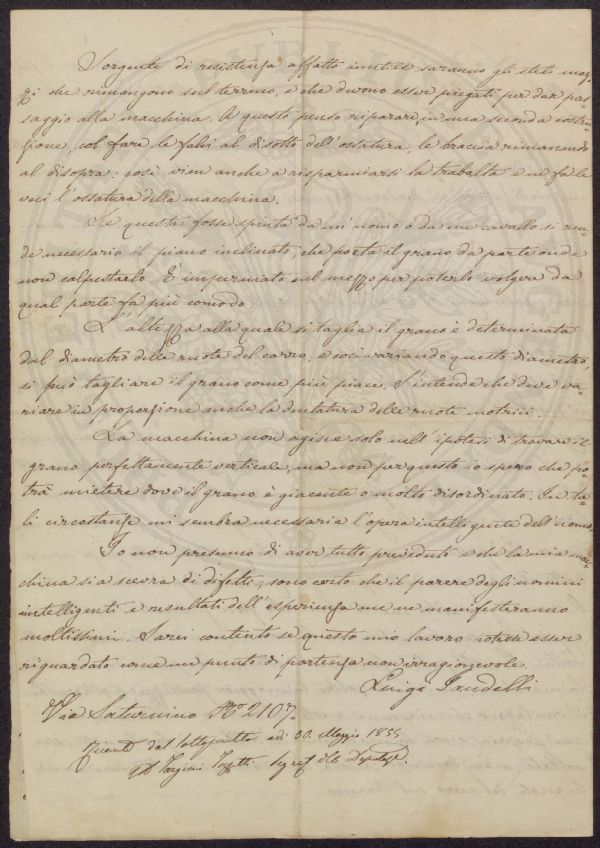 Sorgente di resistenza affatto inutile saranno gli steli moz-
zi che rimangono sul terreno, e che devono esser piegati per dar pas-
saggio alla macchina. A questo penso riparare, in una seconda costru-
zione, col fare le falci al disotto dell'ossatura, le braccia rimanendo
al disopra: così vien anche a risparmiarsi la traballa e ne fa le
veci l'ossatura della macchina.
Se questa fosse spinta da un uomo o da un cavallo si ren-
de necessario il piano inclinato, che porta il grano da parte onde
non calpestarlo. È impernato sul mezzo per poterlo volgere da
qual parte fa più comodo.
L'altezza alla quale si taglia il grano è determinata
dal diametro delle ruote del carro, e così variando questo diametro,
si può tagliare il grano come più piace. S'intende che deve va-
riare in proporzione anche la dentatura delle ruote motrici.
La macchina non agisce solo nell'ipotesi di trovare il
grano perfettamente verticale, ma non per questo io spero che po-
trà mietere dove il grano è giacente o molto disordinato. In ta-
li circostanze mi sembra necessaria l'opera intelligente dell'uomo.
Io non presumo di aver tutto preveduto e che la mia mac-
china sia scevra di difetti; sono certo che il parere degli uomini
intelligenti e resultati dell'esperienza me ne manifesteranno
moltissimi. Sarei contento se questo mio lavoro potesse esser
riguardato come un punto di partenza non irragionevole.
Luigi
Via Saturnino N° 2107.
dal sottoscritto adì 30. Maggio 1855
Targioni Tozzetti